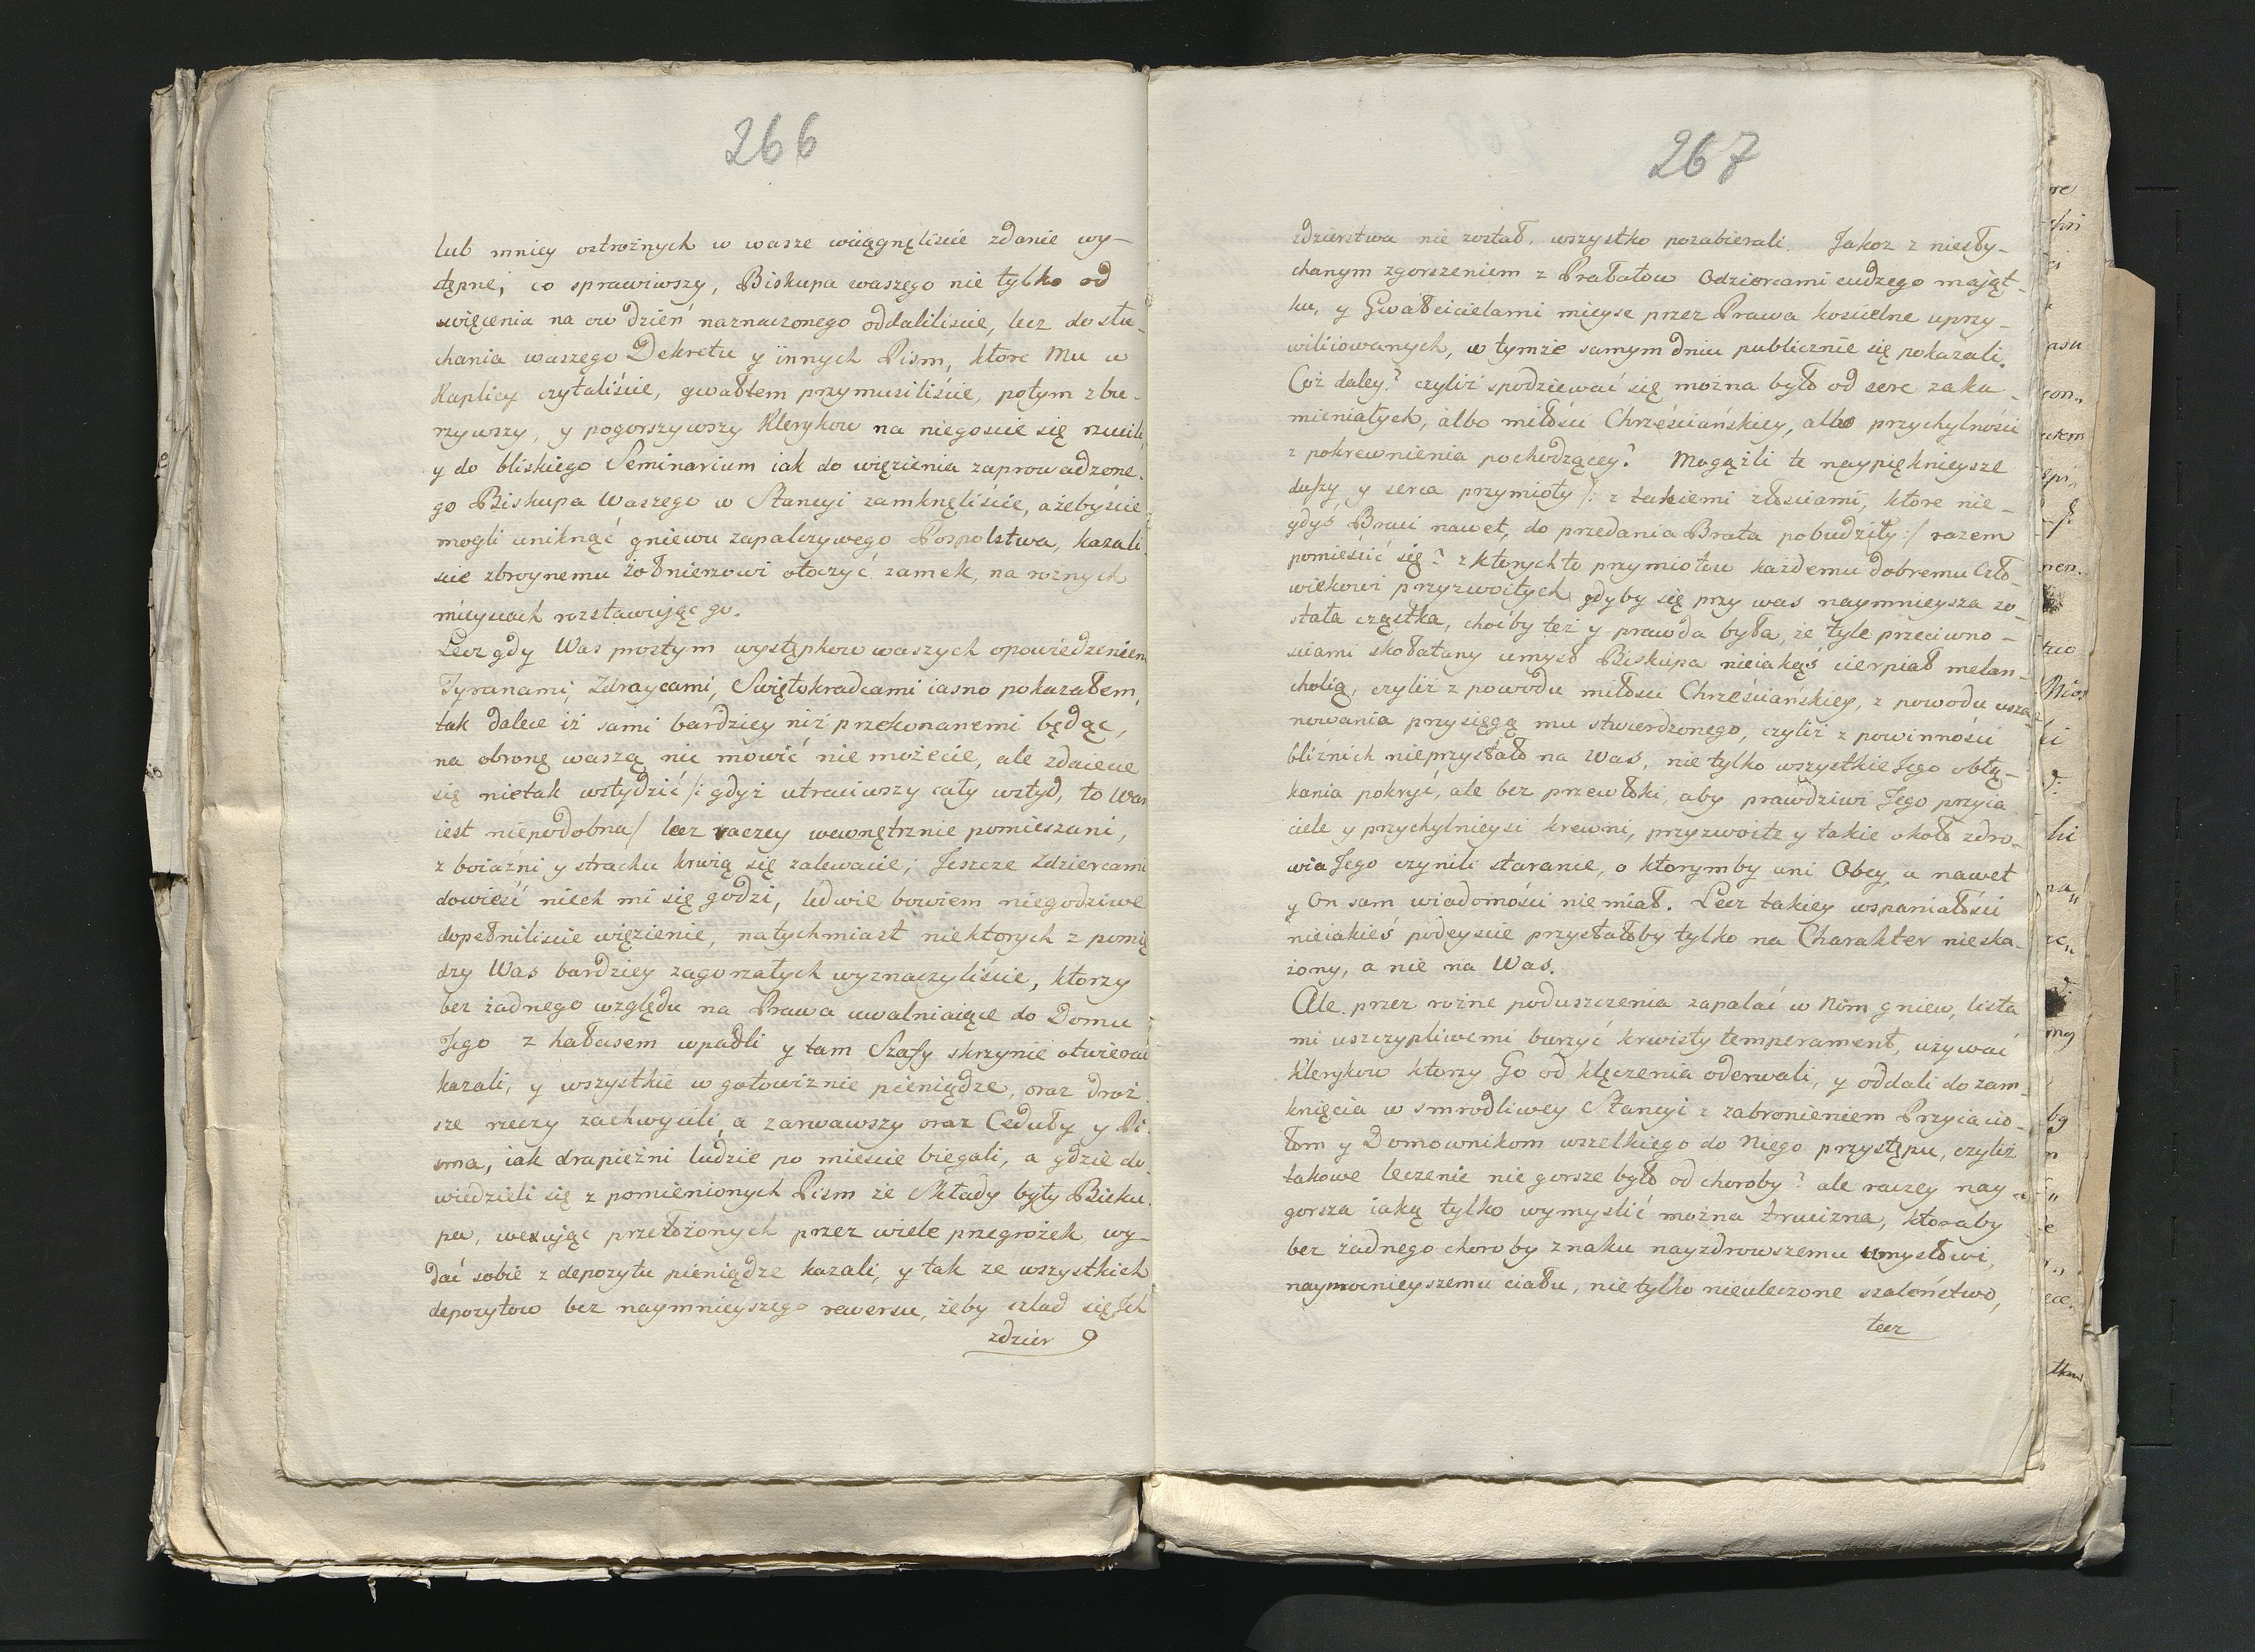 266
lub mniey ostrożnych w wasze wciągnęliście zdanie wy-
stępne, co sprawiwszy, Biskupa waszego nie tylko od
święcenia na ow dzień naznaczonego oddaliliście, lecz do słu-
chania waszego Dekretu y innych Pism, ktore Mu w
Kaplicy czytaliście, gwałtem przymusiliście, potym zbu-
rzywszy, y pogorszywszy Klerykow na niegoście się rzucili,
y do bliskiego Seminarium iak do więzienia zaprowadzone-
go Biskupa Waszego w Stancyi zamknęliście, ażebyście
mogli uniknąć gniewu zapalczywego Pospolstwa, kazali-
ście zbroynemu żołnierzowi otoczyć zamek, na rożnych
mieyscach rozstawuiąc go.
Lecz gdy Was prostym występkow waszych opowiedzeniem
Tyranami, Zdraycami, Swiętokradcami iasno pokazałem,
tak dalece iż sami bardziey niż przekonanemi będąc,
na obronę waszą nic mowić nie możecie, ale zdaiecie
się nietak wstydzić /: gdyż utraciwszy cały wstyd, to Wam
iest niepodobna/ lecz raczey wewnętrznie pomieszani,
z boiaźni y strachu krwią się zalewacie; Jeszcze Zdziercami
dowieść niech mi się godzi, ledwie bowiem niegodziwe
dopełniliście więzienie, natychmiast niektorych z pomię
dzy Was bardziey zagorzałych wyznaczyliście, ktorzy
bez żadnego względu na Prawa uwalniaiące do Domu
Jego z hałasem wpadli y tam Szafy skrzynie otwierać
kazali, y wszystkie w gotowiznie pieniądze, oraz droż
sze rzeczy zachwycili, a zarwawszy oraz Ceduły y Pi-
sma, iak drapieżni ludzie po mieście biegali, a gdzie do-
wiedzieli się z pomienionych Pism że Składy były Bisku-
pa, wexuiąc przełożonych przez wiele przegrożek, wy-
dać sobie z depozytu pieniądze kazali, y tak ze wszystkich
depozytow bez naymnieyszego rewersu, żeby szlad się Ich
zdzier
267
zdzierstwa nie został, wszystko pozabierali. Jakoż z niesły-
chanym zgorszeniem z Prałatow Odziercami cudzego mająt-
ku, y Gwałcicielami mieysc przez Prawa kościelne uprzy-
wiliiowanych, w tymże samym dniu publicznie się pokazali.
Coż daley? czyliż spodziewać się można było od serc zaka-
mieniałych, albo miłości Chrześciańskiey, albo przychylności
z pokrewnienia pochodzącey? Mogąźli te naypięknieysze
duszy y serca przymioty /: z takiemi złościami, ktore nie-
gdyś Braci nawet, do przedania Brata pobudziły :/ razem
pomieścić się? z ktorych to przymiotow każdemu dobremu Czło-
wiekowi przyzwoitych gdyby się przy was naymnieysza zo-
stała cząstka, choćby też y prawda była, że tyle przeciwno-
ściami skołatany umysł Biskupa nieiakąś cierpiał melan-
cholią, czyliż z powodu miłości Chrześciańskiey, z powodu usza-
nowania przysięgą mu stwierdzonego, czyliż z powinności
bliźnich nieprzystało na Was, nie tylko wszystkie Jego obłą-
kania pokryć, ale bez przewłoki, aby prawdziwi Jego przyia
ciele y przychylnieysi krewni, przyzwoite y takie około zdro-
wia Jego czynili staranie, o ktorymby ani Obcy, a nawet
y On sam wiadomości nie miał. Lecz takiey wspaniałości
nieiakieś podeyście przystałoby tylko na Charakter nieska-
żony, a nie na Was.
Ale przez rożne poduszczenia zapalać w Nim gniew, lista
mi uszczypliwemi burzyć krwisty temperament, używać
Klerykow ktorzy Go od klęczenia oderwali, y oddali do zam-
knięcia w smrodliwey Stancyi z zabronieniem Przyiacio-
łom y Domownikom wszelkiego do Niego przystępu, czyliż
takowe leczenie nie gorsze było od choroby? ale raczey nay-
gorsza iaką tylko wymyslić można trucizna, ktoraby
bez żadnego choroby znaku nayzdrowszemu umysłowi,
naymocnieyszemu ciału, nie tylko nieuleczone szaleństwo,
lecz